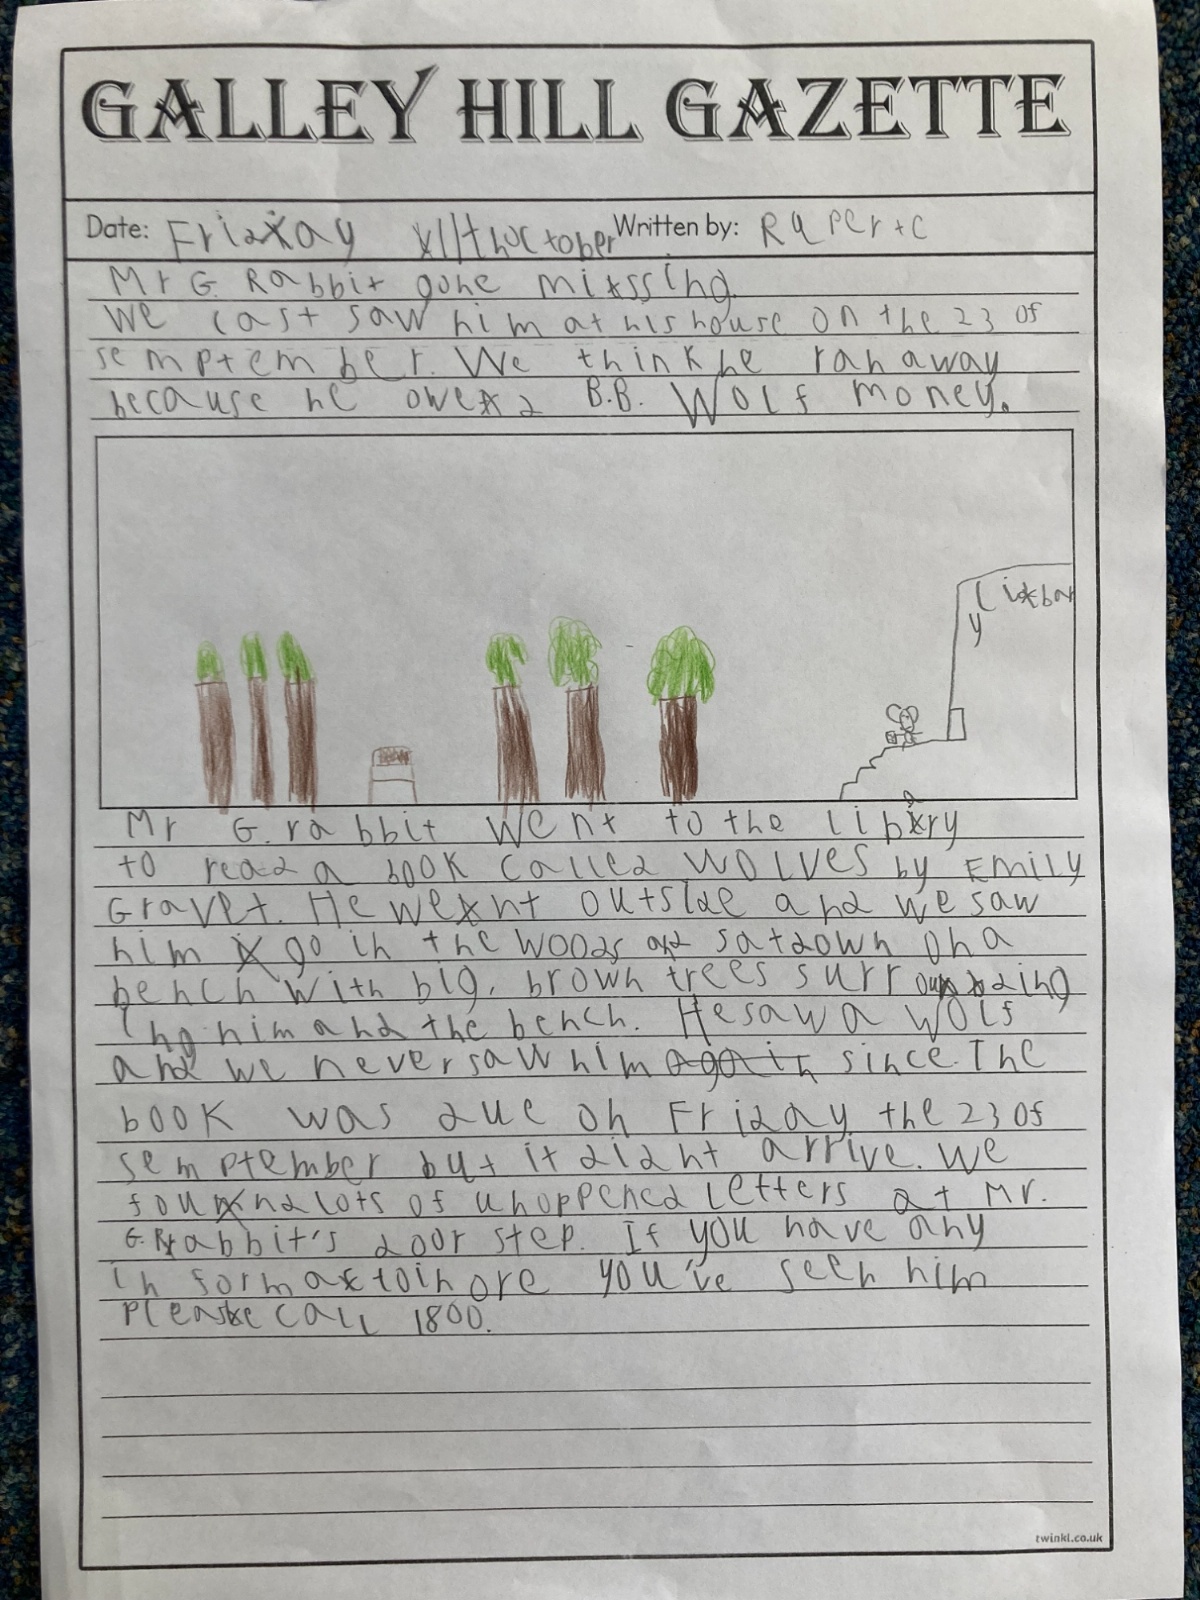 GALLEY HILL GAZETTE
Date: Friday 11th October Written by: Ruper+ C
Mr G. Rabbit gone missing.
We last saw him at his house on the 23 of
semptember. We think he ran away
because he owed B.B. Wolf money.
Library
Mr G. rabbit went to the library
to read a book called WOLVES by Emily
Gravet. He went outside and we saw
him go in the woods and sat down on a
bench with big, brown trees surrounding
ing him and the bench. He saw a wolf
and we never saw him again since. The
book was due on Friday the 23 of
semptember but it didnt arrive. We
found lots of unoppened letters at Mr.
G. Rabbit's door step. If you have any
in formatoin ore you've seen him
Please call 1800.
twinkl.co.uk